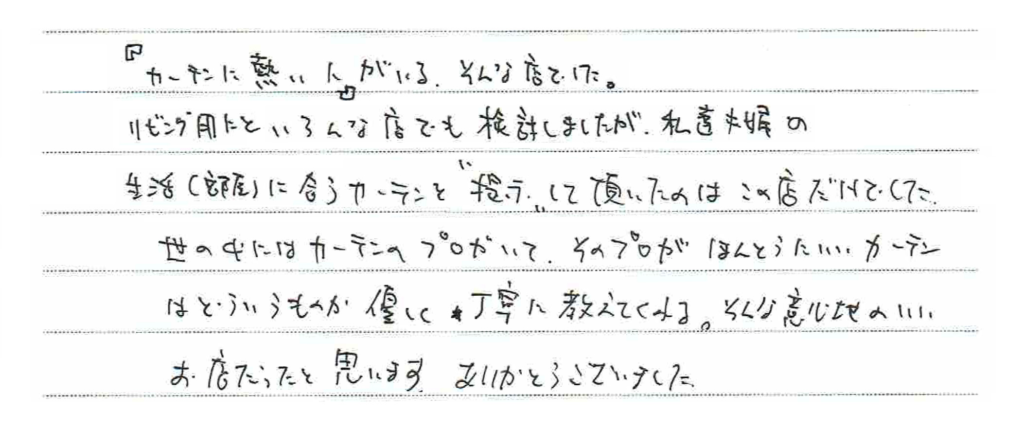 『カーテンに熱い人』がいる、そんな店でした。
リビング用だといろんな店でも検討しましたが、私達夫婦の
生活(部屋)に合うカーテンを"提示"して頂いたのはこの店だけでした。
世の中にはカーテンのプロがいて、そのプロがほんとうにいいカーテン
はどういうものか優しく丁寧に教えてくれる。そんな意心地のいい
お店だったと思います。ありがとうございました。